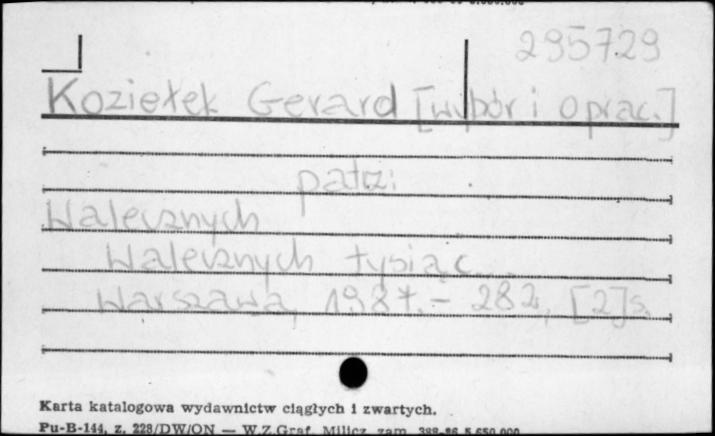 295729
Koziełek Gerard [wybór i oprac.]
patrz:
Walecznych
Walecznych tysiąc...
Warszawa, 1987. - 282, [2] s.
Karta katalogowa wydawnictw ciągłych i zwartych.
Pu-B-144, z. 228/DW/ON — W.Z.Graf. Milicz, zam. 388-86 5.650.000